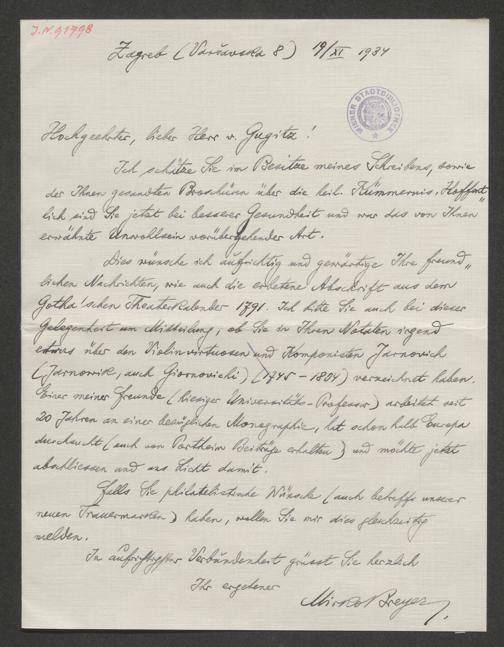 J.N. 91798
Zagreb (Varšavska 8) 19/XI 1934
WIENER STADTBIBLIOTHEK
Hochgeehrter, lieber Herr v. Gugitz!
Ich schätze Sie im Besitze meines Schreibens, sowie
der Ihnen gesandten Broschüren über die heil. Kümmernis. Hoffent„
lich sind Sie jetzt bei besserer Gesundheit und war das von Ihnen
erwähnte Unwohlsein vorübergehender Art.
Dies wünsche ich aufrichtig und gewärtige Ihre freund„
lichen Nachrichten, wie auch die erbetene Abschrift aus dem
Gotha'schen Theaterkalender 1791. Ich bitte Sie auch bei dieser
Gelegenheit um Mitteilung, ob Sie in Ihren Notaten irgend
etwas über den Violinvirtuosen und Komponisten Jarnovich
(Jarnowik, auch Giornovichi) (1745-1804) verzeichnet haben.
Einer meiner Freunde (hiesiger Universitäts-Professor) arbeitet seit
20 Jahren an einer bezüglichen Monographie, hat schon halb Europa
durchsucht (auch von Portheim Beiträge erhalten) und möchte jetzt
abschliessen und ans Licht damit.
Falls Sie philatelistische Wünsche (auch betreffs unserer
neuen Trauermarken) haben, wollen Sie mir dies gleichzeitig
melden.
In aufrichtigster Verbundenheit grüsst Sie herzlich
Ihr ergebener
Mirko Breyer